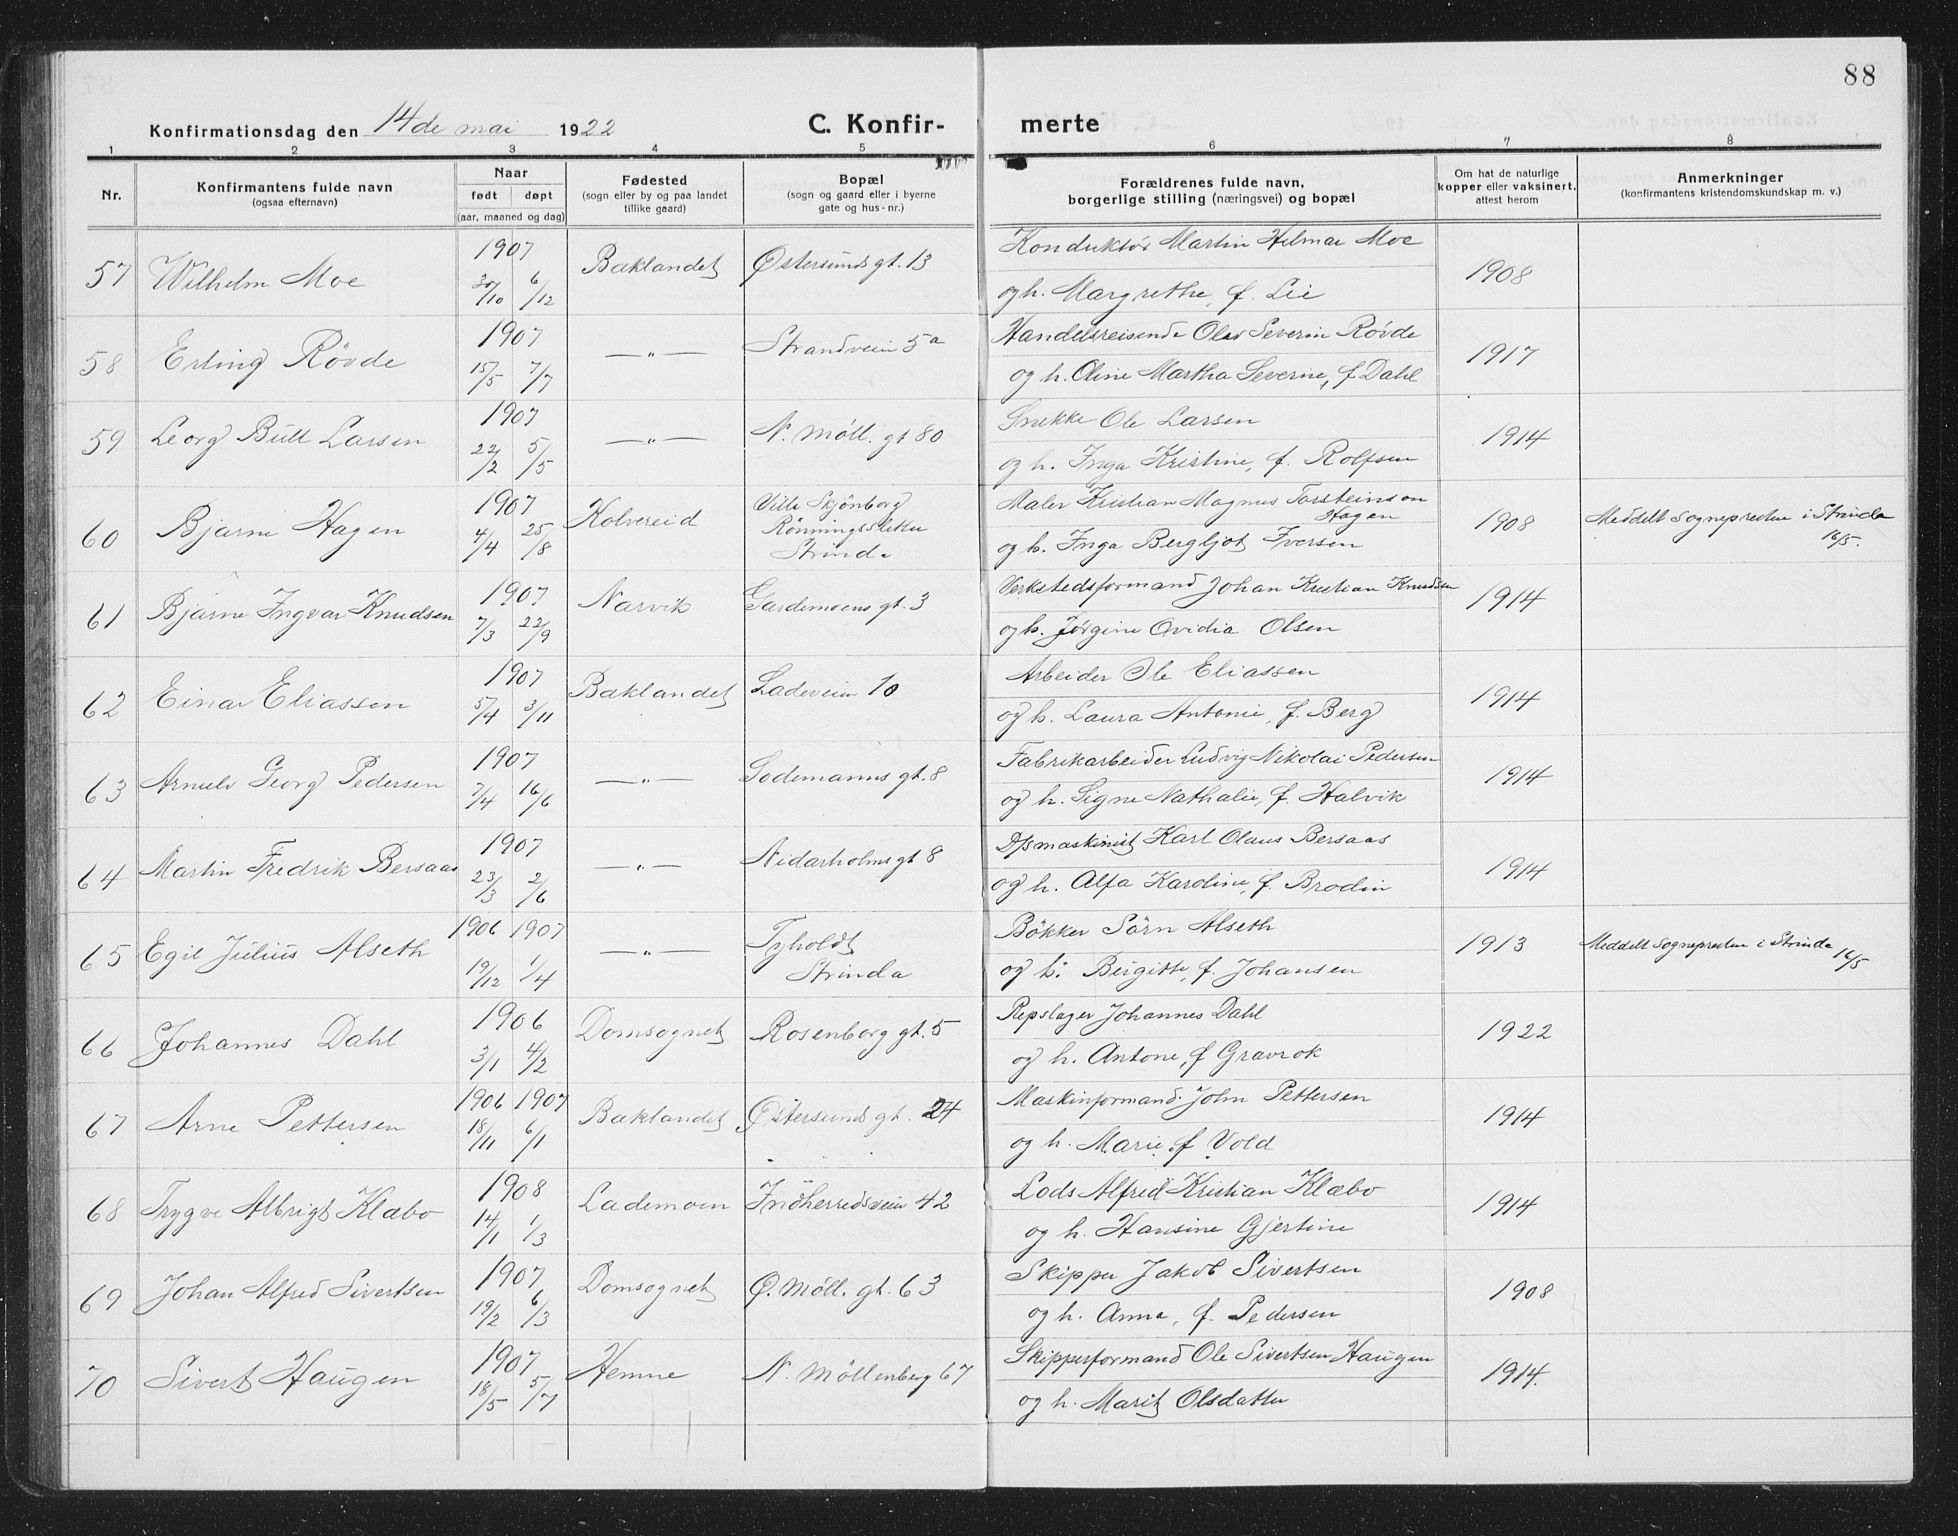 88
Konfirmationsdag den 14de mai 1922 C. Konfir- merte
1 2 3 4 5 6 7 8
Nr. Konfirmantens fulde navn (ogsaa efternavn) Naar født døpt (aar, maaned og dag) Fødested (sogn eller by og paa landet tillike gaard) Bopæl (sogn og gaard eller i byerne gate og hus-nr.) Forældrenes fulde navn, borgerlige stilling (næringsvei) og bopæl Om hat de naturlige kopper eller vaksinert, attest herom Anmerkninger (konfirmantens kristendomskundskap m. v.)
57 Wilhelm Moe 1907 30/10 6/12 Baklandet Østersunds gt. 13 Konduktør Martin Hilmar Moe 1908
og h. Margrethe, f. Lie
58 Erling Rövde 1907 15/5 7/7 —„— Strandveien 5a Handelsreisende Olav Severin Rövde 1917
og h. Oline Martha Severine, f. Dahl
59 Georg Bull Larsen 1907 22/2 5/5 —„— N. Möll. gt 80 Snekke Ole Larsen 1914
og h. Inga Kristine, f. Rolfsen
60 Bjarne Hagen 1907 4/4 25/8 Kolvereid Villa Skjönborg Maler Kristian Magnus Torsteinson 1908 Meddelt Sognepresten i Strinda
Hagen 16/5.
Strinda og h. Inga Bergljot Iversen
61 Bjarne Ingvar Knudsen 1907 7/3 22/9 Narvik Gardemoens gt. 3 Verkstedsformand Johan Kristian Knudsen 1914
og h. Jørgine Ovidia Olsen
62 Einar Eliassen 1907 5/4 3/11 Baklandet Ladeveien 10 Arbeider Ole Eliassen 1914
og h. Laura Antonie, f. Berg
63 Arnulv Georg Pedersen 1907 7/4 16/6 —„— Sodemanns gt. 8 Fabrikarbeider Ludvig Nikolai Pedersen 1914
og h. Signe Nathalie, f. Halvik
64 Martin Fredrik Bersaas 1907 23/3 2/6 —„— Nidarholms gt 8 D/smaskinist Karl Olaus Bersaas 1914
og h. Alfa Karoline, f. Brodin
65 Egil Julius Alseth 1906 19/12 1907 1/4 —„— Tyholdt Bökker Sörn Alseth 1913 Meddelt Sognepresten i Strinda 16/5
Strinda og h. Birgitte, f. Johansen
66 Johannes Dahl 1906 3/1 4/2 Domsognet Rosenborg gt. 5 Repslager Johannes Dahl 1922
og h. Antone, f Gravrok
67 Arne Pettersen 1906 18/11 1907 6/1 Baklandet Østersunds gt. 24 Maskinformand John Pettersen 1914
og h. Marie, f Vold
68 Trygve Albrigt Klæbo 1908 14/1 1/3 Lademoen Indherredsveien 42 Lods Alfred Kristian Klæbo 1914
og h. Hansine Gjertine
69 Johan Alfred Sivertsen 1907 19/2 6/3 Domsognet Ø. Möll. gt. 63 Skipper Jakob Sivertsen 1908
og h. Anna, f. Pedersen
70 Sivert Haugen 1907 18/5 5/7 Hemne N. Möllenberg 67 Skipperformand Ole Sivertsen Haugen 1914.
og h. Marit Olsdatter